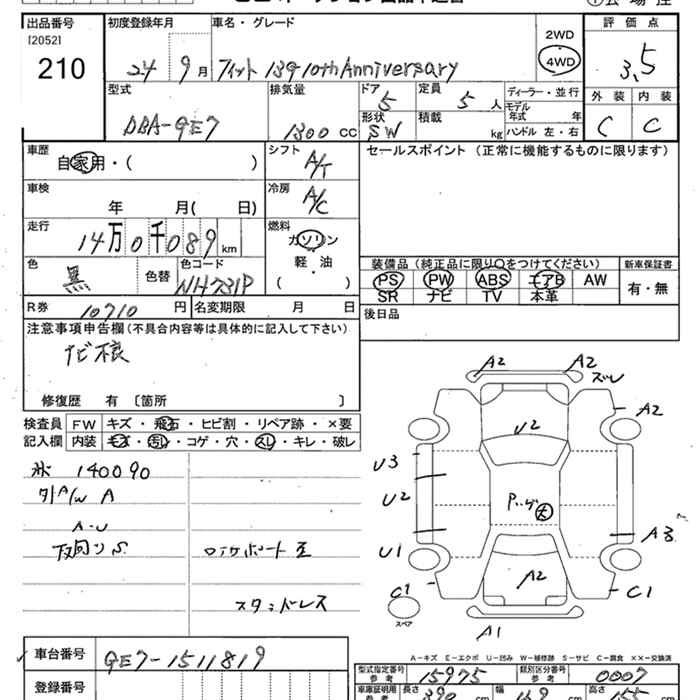 出品番号
[2052]
210
初度登録年月
24 9月
車名・グレード
フィット 13G 10th Anniversary
2WD
4WD
評価点
3.5
外装 内装
C C
型式
DBA-GE7
排気量
1300 CC
ドア
5
形状
SW
定員
5人
積載
kg
ディーラー・並行
モデル
年式 年
ハンドル 左・右
車歴
自家用・( )
シフト
A/T
セールスポイント (正常に機能するものに限ります)
車検
年 月( 日)
冷房
A/C
走行
14万0千089km
燃料
ガソリン
軽・油
( )
色
黒
色替
色コード
NH731P
装備品 (純正品に限り○をつけてください)
PS PW ABS エアB AW
SR ナビ TV 本革
新車保証書
有・無
R券
10710円
名変期限 月 日
後日品
注意事項申告欄(不具合内容等は具体的に記入して下さい)
ナビ不良
修復歴 有 〔箇所 〕
検査員
記入欄
FW キズ・飛石・ヒビ割・リペア跡・×要
内装 キズ・汚れ・コゲ・穴・スレ・キレ・破レ
140090
A/W A
A-U
下回りS
スタッドレス
A2
A2
ズレ
A2
U2
U3
U2
U1
A3
A2
C1
C1
スペア
A1
A-キズ E-エクボ U-凹み W-補修跡 S-サビ C-腐食 ××-交換済
車台番号
GE7-1511819
登録番号
型式指定番号
参考
15975
類別区分番号
参考
0007
車庫証明用
参考
長さ 390 cm
幅 169 cm
高さ 155 cm